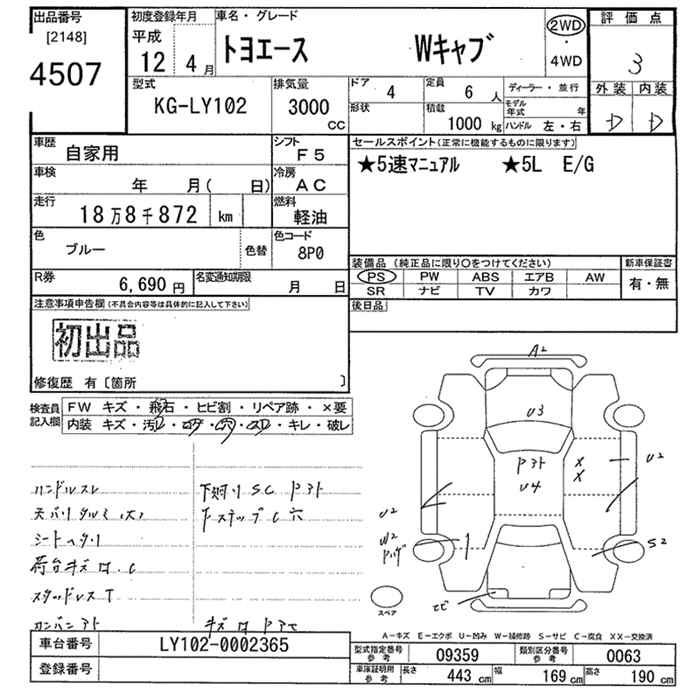 出品番号
[2148]
4507
初度登録年月
平成
12 4月
車名・グレード
トヨエース Wキャブ
2WD
・
4WD
評価点
3
外装 内装
D D
型式
KG-LY102
排気量
3000
CC
ドア
4
定員
6 人
形状
積載
1000 kg
ディーラー・並行
モデル
年式 年
ハンドル 左・右
車歴
自家用
シフト
F5
車検
年 月( 日)
冷房
AC
走行
18万8千872 km
燃料
軽油
色
ブルー
色替
色コード
8P0
R券
6,690 円
名変通知期限
月 日
セールスポイント(正常に機能するものに限ります)
★5速マニュアル ★5L E/G
装備品(純正品に限り○をつけてください)
PS PW ABS エアB AW
SR ナビ TV カワ
新車保証書
有・無
後日品
注意事項申告欄(不具合内容等は具体的に記入して下さい)
初出品
修復歴 有〔箇所 〕
検査員
記入欄
FW キズ・飛石・ヒビ割・リペア跡・×要
内装 キズ・汚レ・コゲ・穴・スレ・キレ・破レ
ハンドルスレ
天バリタルミ(大)
シートヘタリ
荷台キズ凹.C
スタッドレスT
下廻りSC P3ト
Fステップ C穴
A2
U3
P3ト
U4
X
X
U2
U2
W2
S2
サビ
スペア
A-キズ E-エクボ U-凹み W-補修跡 S-サビ C-腐食 XX-交換済
車台番号
LY102-0002365
登録番号
型式指定番号
参考
09359
類別区分番号
参考
0063
車庫証明用
参考
長さ 443 cm 幅 169 cm 高さ 190 cm